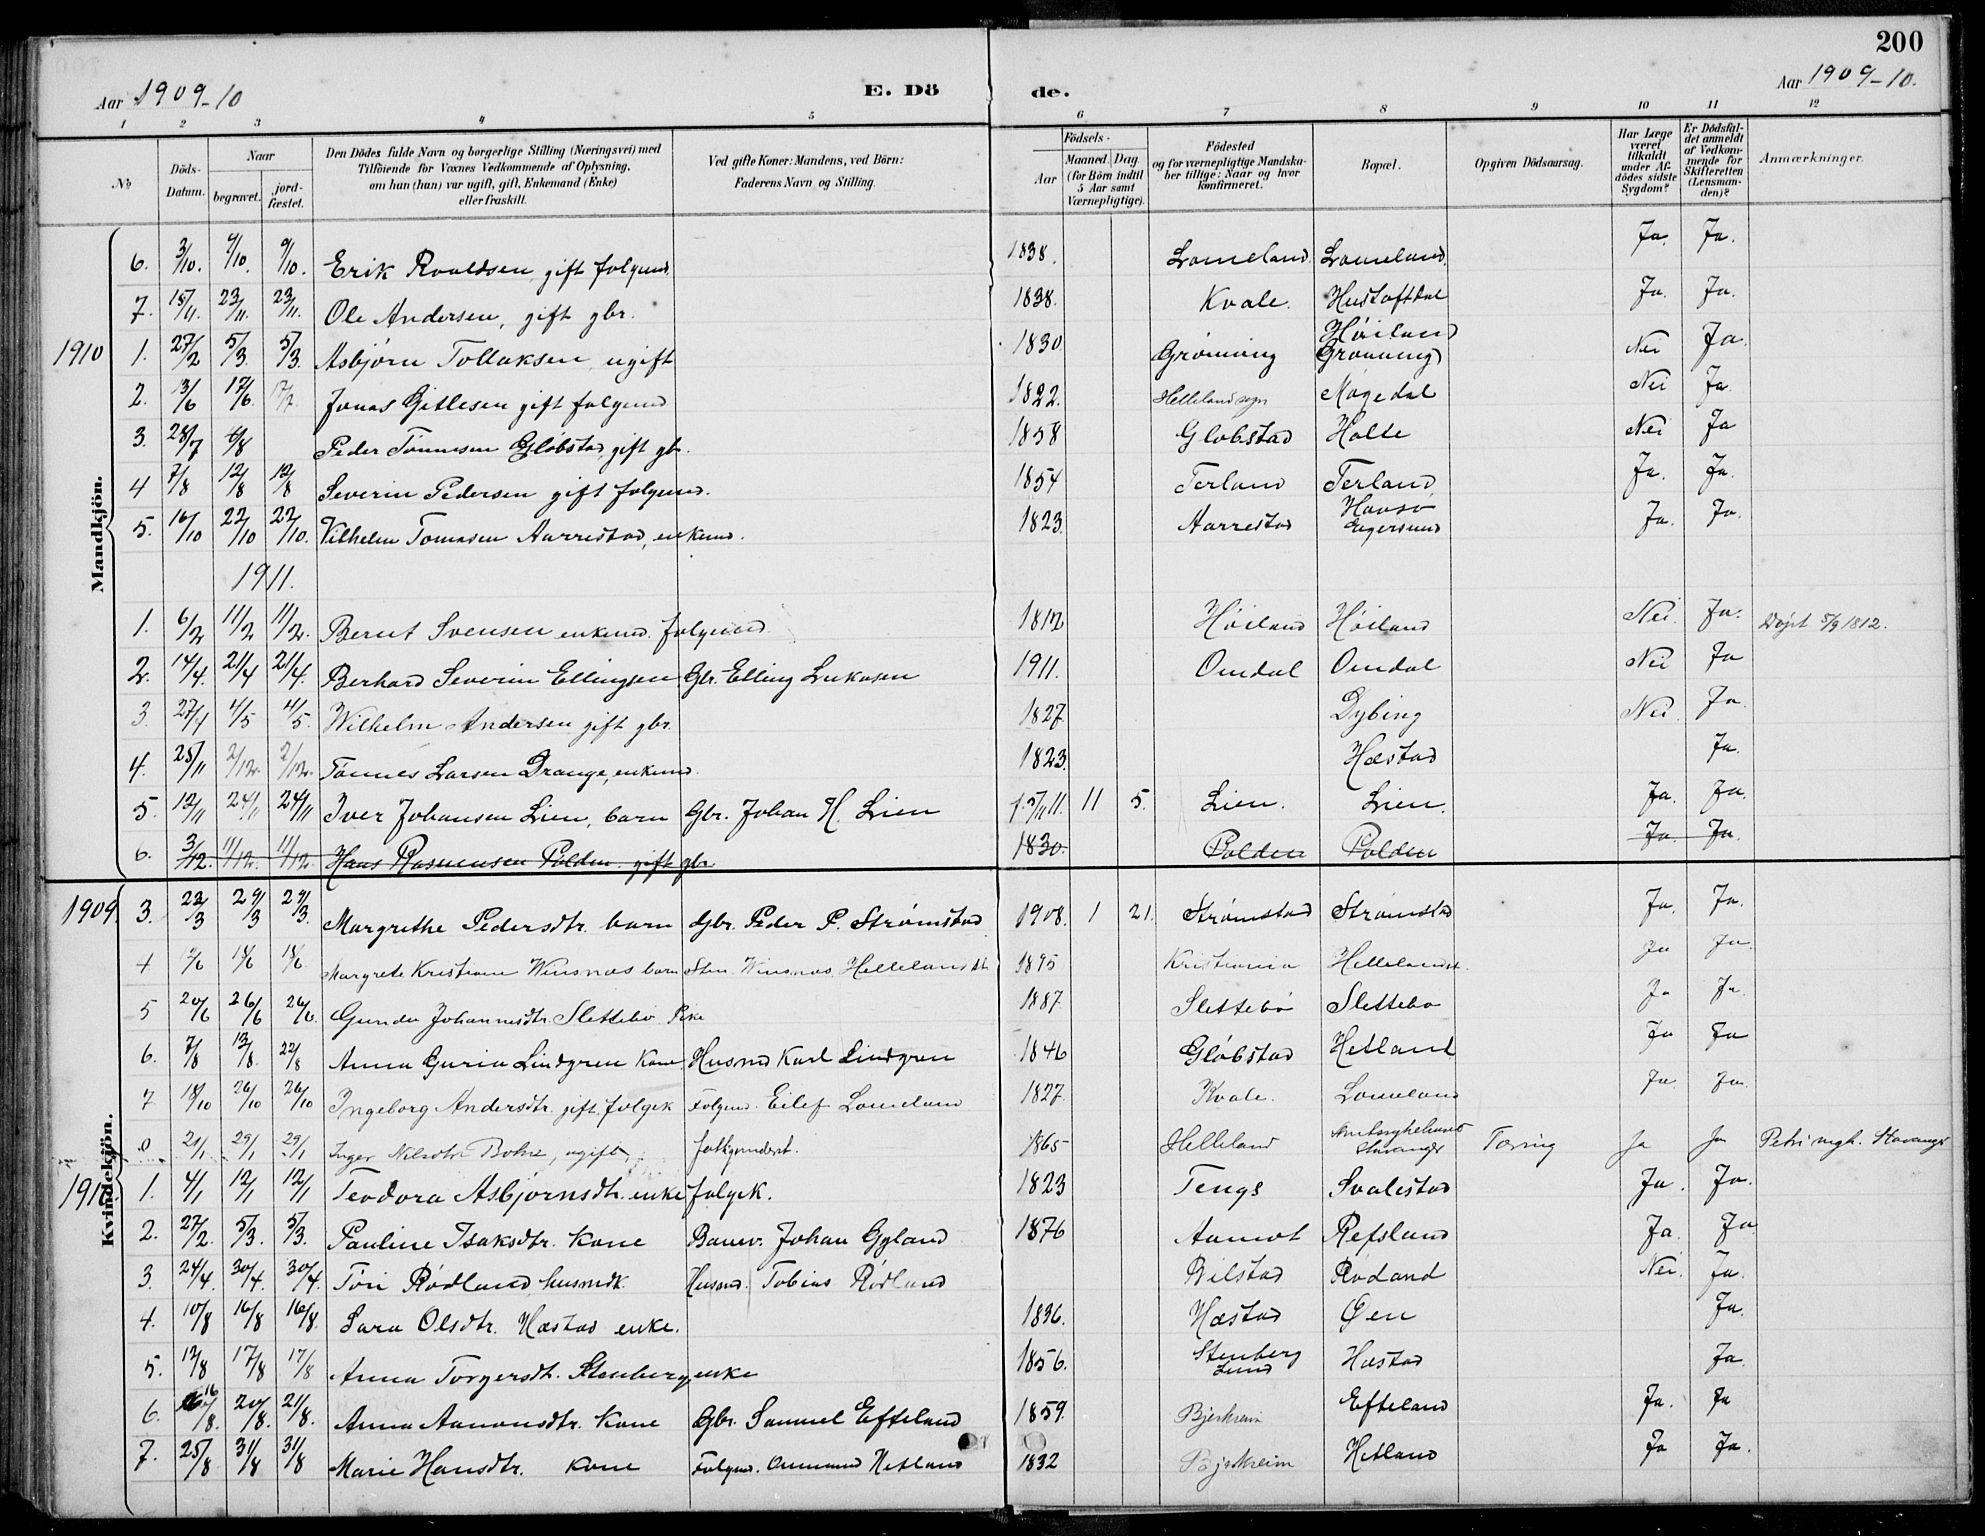 200
Aar 1909-10 E. Dö de. Aar 1909-10.
1 2 3 4 5 6 7 8 9 10 11 12
No Döds-Datum. Naar begravet. jord-fæstet. Den Dödes fulde Navn og borgerlige Stilling (Næringsvei) med Tilföiende for Voxnes Vedkommende af Oplysning, om han (hun) var ugift, gift, Enkemand (Enke) eller fraskilt. Ved gifte Koner: Mandens, ved Börn: Faderens Navn og Stilling. Födsels- Aar Maaned. Dag. (for Börn indtil 5 Aar samt Værnepligtige). Födested og for værnepligtige Mandskaber tillige: Naar og hvor konfirmeret. Bopæl. Opgiven Dödsaarsag. Har Læge været tilkaldt under Afdödes sidste Sygdom? Er Dödsfaldet anmeldt af Vedkommende for Skifteretten (Lensmanden)? Anmærkninger.
Mandkjön.
6. 3/10. 9/10. 9/10. Erik Roaldsen, gift folgmd. 1838. Lomeland Lomeland. Ja. Ja.
7. 15/11. 23/11. 23/11. Ole Andersen, gift gbr. 1838. Kvale. Hustoftdal Ja. Ja.
1910 1. 27/2 5/3. 5/3. Asbjörn Tollaksen, ugift 1830 Grönning Höiland Grönning Nei Ja.
2. 13/6 17/6. 17/7. Jonas Gitlesen gift folgmd 1822. Helleland sogn Mögedal Nei Ja.
3. 28/7 6/8 Peder Tönnesen Glöbstad, gift gbr. 1858 Globstad Holte Nei Ja
4 7/8 12/8 12/8 Severin Pedersen gift folgmd. 1854 Terland Terland Ja. Ja.
5. 16/10 22/10 22/10. Vilhelm Tomasen Aarrestad, enkemd. 1823. Aarrestad Havsö Egersund Ja. Ja.
1911.
1. 6/2 11/2 11/2. Bernt Svensen enkemd. folgemand 1812 Höiland Höiland Nei. Ja. Döpt 5/9 1812.
2. 14/4. 21/4 21/4. Berhard Severin Ellingsen Gbr. Elling Lukasen 1911. Omdal Omdal Nei Ja
3. 27/4 4/5 4/5. Wilhelm Andersen gift gbr. 1827. Dybing Nei. Ja.
4. 25/11 2/12. 2/12. Tönnes Larsen Drange, enkemd. 1823. Hæstad Ja.
5. 12/11 24/11 24/11 Iver Johansen Lien, barn Gbr. Johan H. Lien f. 5/11 11. 11 5. Lien. Lien. Ja. Ja.
6. 3/12. 11/12. 11/12. Hans Rasmussen Polden gift gbr. 1830. Polden Polden Ja. Ja.
Kvindekjön.
1909. 3. 23/3 29/3 29/3. Margrethe Pedersdtr. barn Gbr. Peder P. Strömstad 1908. 1 21. Strömstad Strömstad Ja. Ja.
4 7/6 15/6 15/6. Margrete Kristiane Winsnæs barn Winsnæs Helleland 1895 Kristiania Helleland Ja Ja.
5 20/6 26/6 26/6. Gunda Johannesdtr. Slettebö Pike 1887. Slettebö Slettebo Ja Ja.
6. 7/8 13/8. 22/8 Anna Guria Lindgren Kone Husmd Karl Lindgren 1846 Glöbstad Hetland Ja Ja
7 18/10 26/10 26/10 Ingeborg Andersdtr. gift folgek Folgmd. Eilef Lomeland 1827. Kvale. Lomeland Ja. Ja.
0 21/1 29/1 29/1 Inger Nilsdtr Bohe, ugift, fattigunderst. 1865 Helleland Amtssykehuset Stavanger Tæring Ja Ja Petri mgh. Stavanger
1910 1. 4/1 12/1 12/1 Teodora Asbjörnsdtr. enke folgek. 1823 Tengs Svalestad Ja. Ja.
2. 27/2. 5/3. 5/3. Pauline Isaksdtr. Kone Banev. Johan Gyland 1876 Aamot Refsland Ja. Ja.
3. 24/4. 30/4. 30/4. Töri Rödland husmdk. Husmd. Tobias Rödland Bilstad Rodand Nei. Ja.
4. 10/8 16/8 16/8. Sara Olsdtr. Hæstad enke. 1836. Hæstad Öen Ja.
5. 12/8 17/8 17/8 Anna Torgersdtr. Stenberg enke 1856. Stenberg Lund Hæstad Ja.
6. 16/8. 20/8. 21/8. Anna Aamonsdtr. Kone Gbr. Samuel Efteland 1859. Bjerkreim Efteland Ja. Ja
7. 25/8 31/8 31/8 Marie Hansdtr. Kone Folgmd. Ommund Hetland 1832 Bjerkreim Hetland Ja Ja.